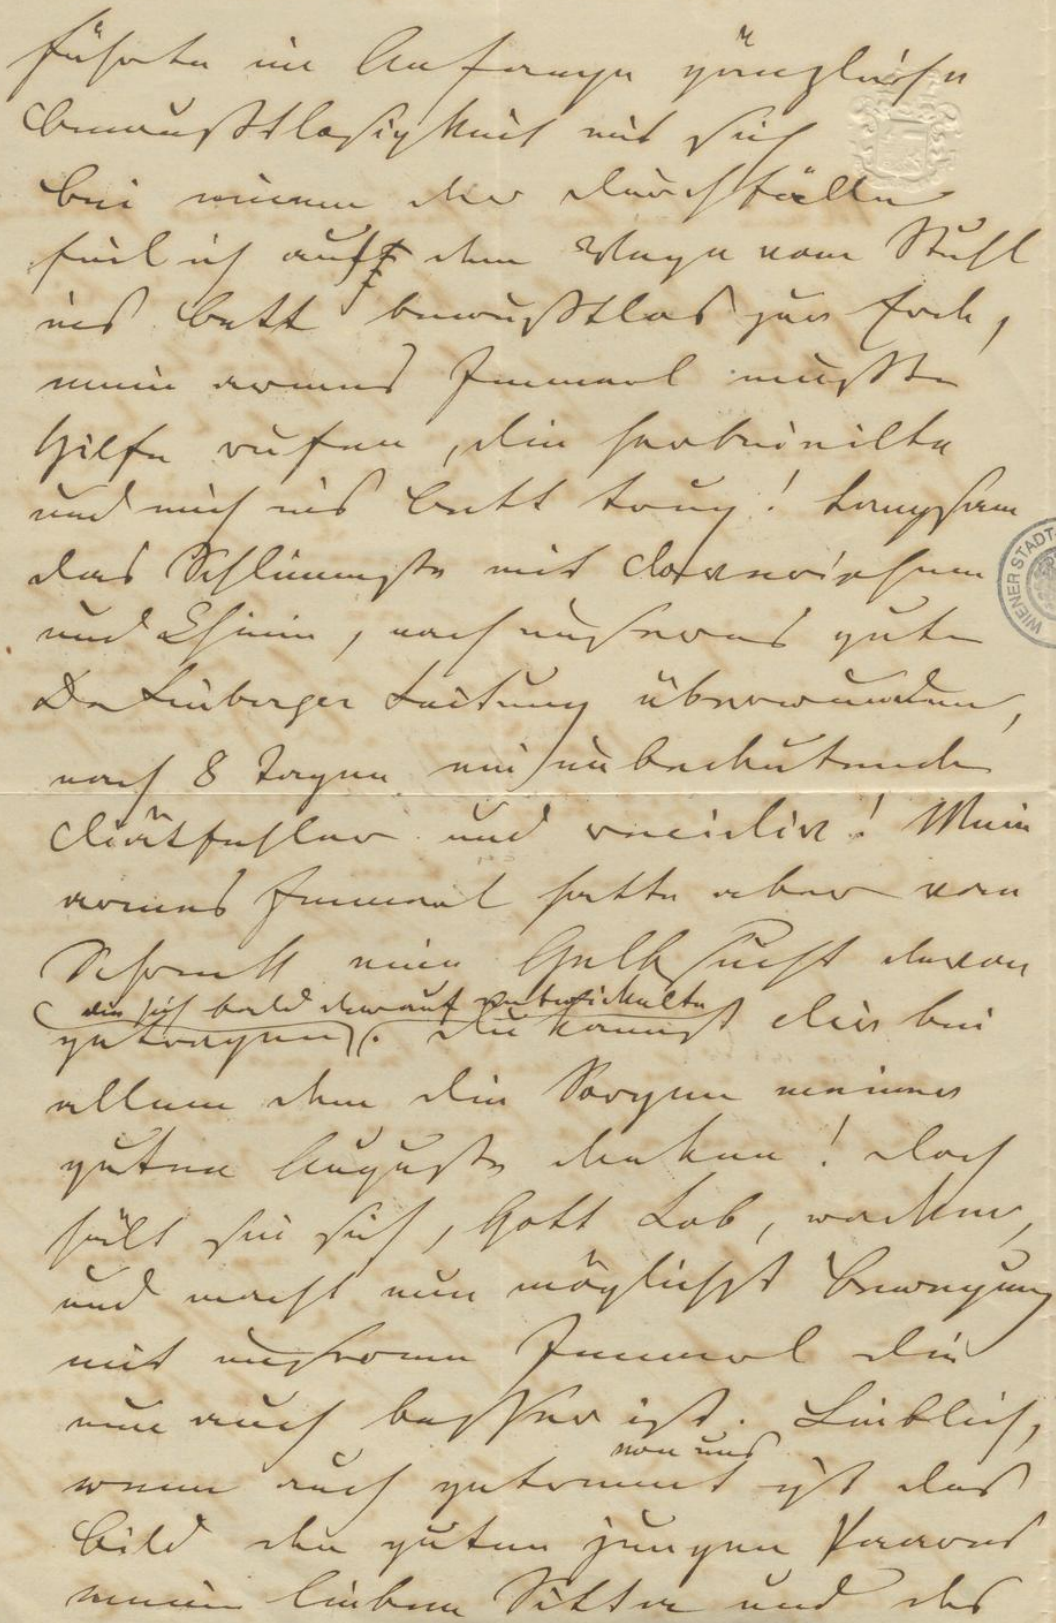 führte im Anfange gänzliche
Bewußtlosigkeit mit sich
bei einem der Durchfälle
fiel ich auf dem Wege vom Stuhl
ins Bett bewußtlos zur Erde,
mein armes Emmerl mußte
Hilfe rufen, die herbeieilte
und mich ins Bett trug! Langsam
das Schlimmste mit
und Chinin, nach unseres guten
Dr Leitung überwunden,
nach 8 Tagen ein unbedeutender
Diätfehler und recidiv! Mein
armes Emmerl hatte aber vom
Schreck eine Gelbsucht davon
die sich bald darauf entwickelte
getragen. Du kannst dir bei
allem dem die Sorgen meiner
guten Auguste denken! Doch
hält sie sich, Gott Lob, wacker,
und macht nun möglichst Bewegung
mit unserem Emmerl die
nun auch besser ist. Lieblich,
von uns
wenn auch getrennt ist das
Bild des guten jungen Paares
meiner lieben und des
WIENER STADT-